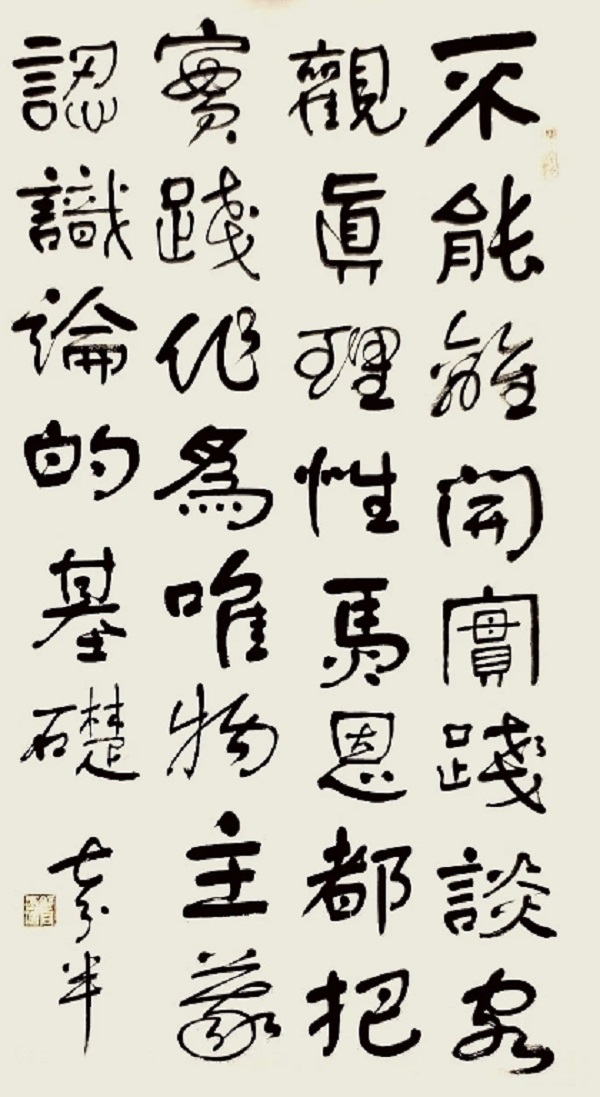 不能離開實踐談客
觀真理性馬恩都把
實踐作為唯物主義
認識論的基礎
七分半